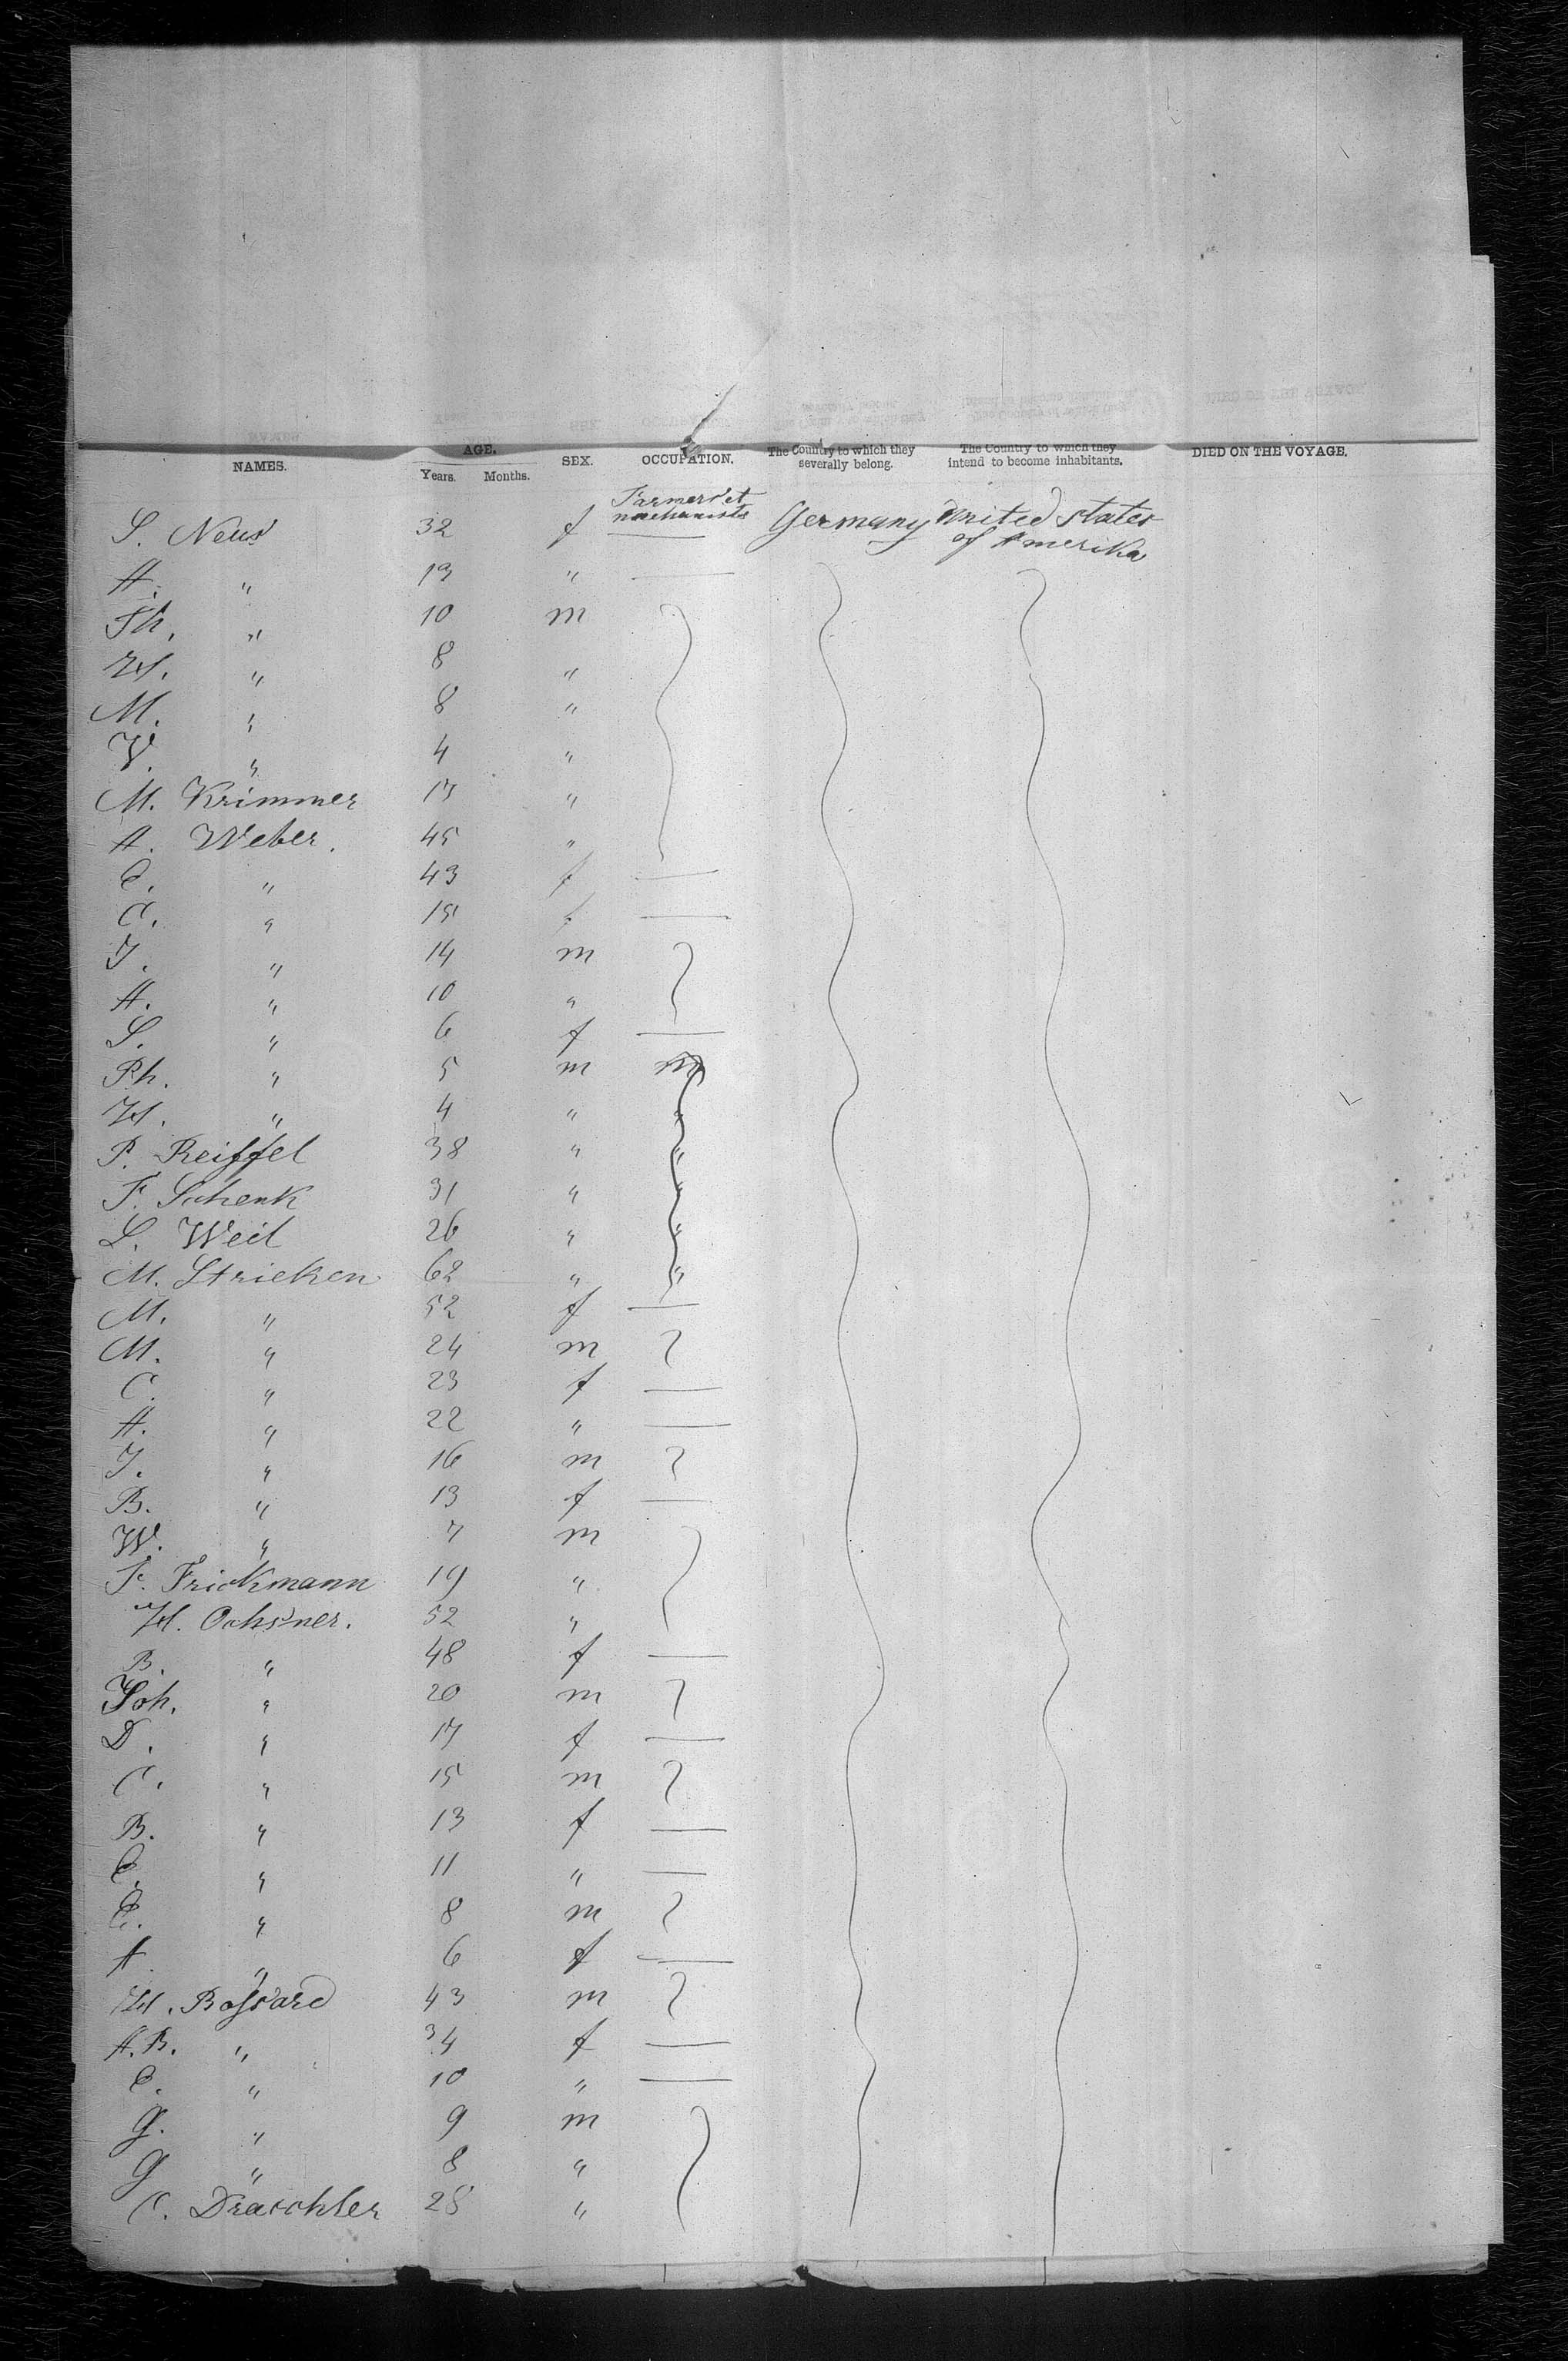 NAMES. AGE. SEX. OCCUPATION. The Country to which they severally belong. The Country to which they intend to become inhabitants. DIED ON THE VOYAGE.
Years. Months.
Farmers et
S. Neus 32 f mechanists Germany United states
of Amerika
A. " 13 "
Th. " 10 m
H. " 8 "
M. " 8 "
V. " 4 "
M. Krimmer 17 "
A. Weber. 45 "
E. " 43 f
C. " 15 f
J. " 14 m
A. " 10 "
S. " 6 f
Ph. " 5 m m
H. " 4 " "
P. Reiffel 38 " "
F. Schenk 31 " "
L. Weil 26 " "
M. Strieken 62 " "
M. " 52 f
M. " 24 m
C. " 23 f
A. " 22 "
J. " 16 m
B. " 13 f
W. " 7 m
F. Frickmann 19 "
H. Ochsner. 52 "
B. " 48 f
Joh. " 20 m
D. " 17 f
C. " 15 m
B. " 13 f
E. " 11 "
E. " 8 m
A " 6 f
H. Bossard 43 m
A. B. " 34 f
E. " 10 "
G. " 9 m
G " 8 "
C. Draechler 28 "